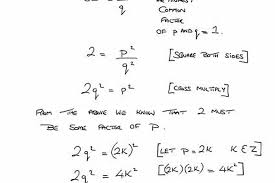 q
COMMON
FACTOR
OF P AND q = 1.
2 = P² / q² [SQUARE BOTH SIDES]
2q² = P² [CROSS MULTIPLY]
FROM THE ABOVE WE KNOW THAT 2 MUST
BE SOME FACTOR OF P.
2q² = (2K)² [LET P = 2K K ∈ Z]
2q² = 4K² [(2K)(2K) = 4K²]